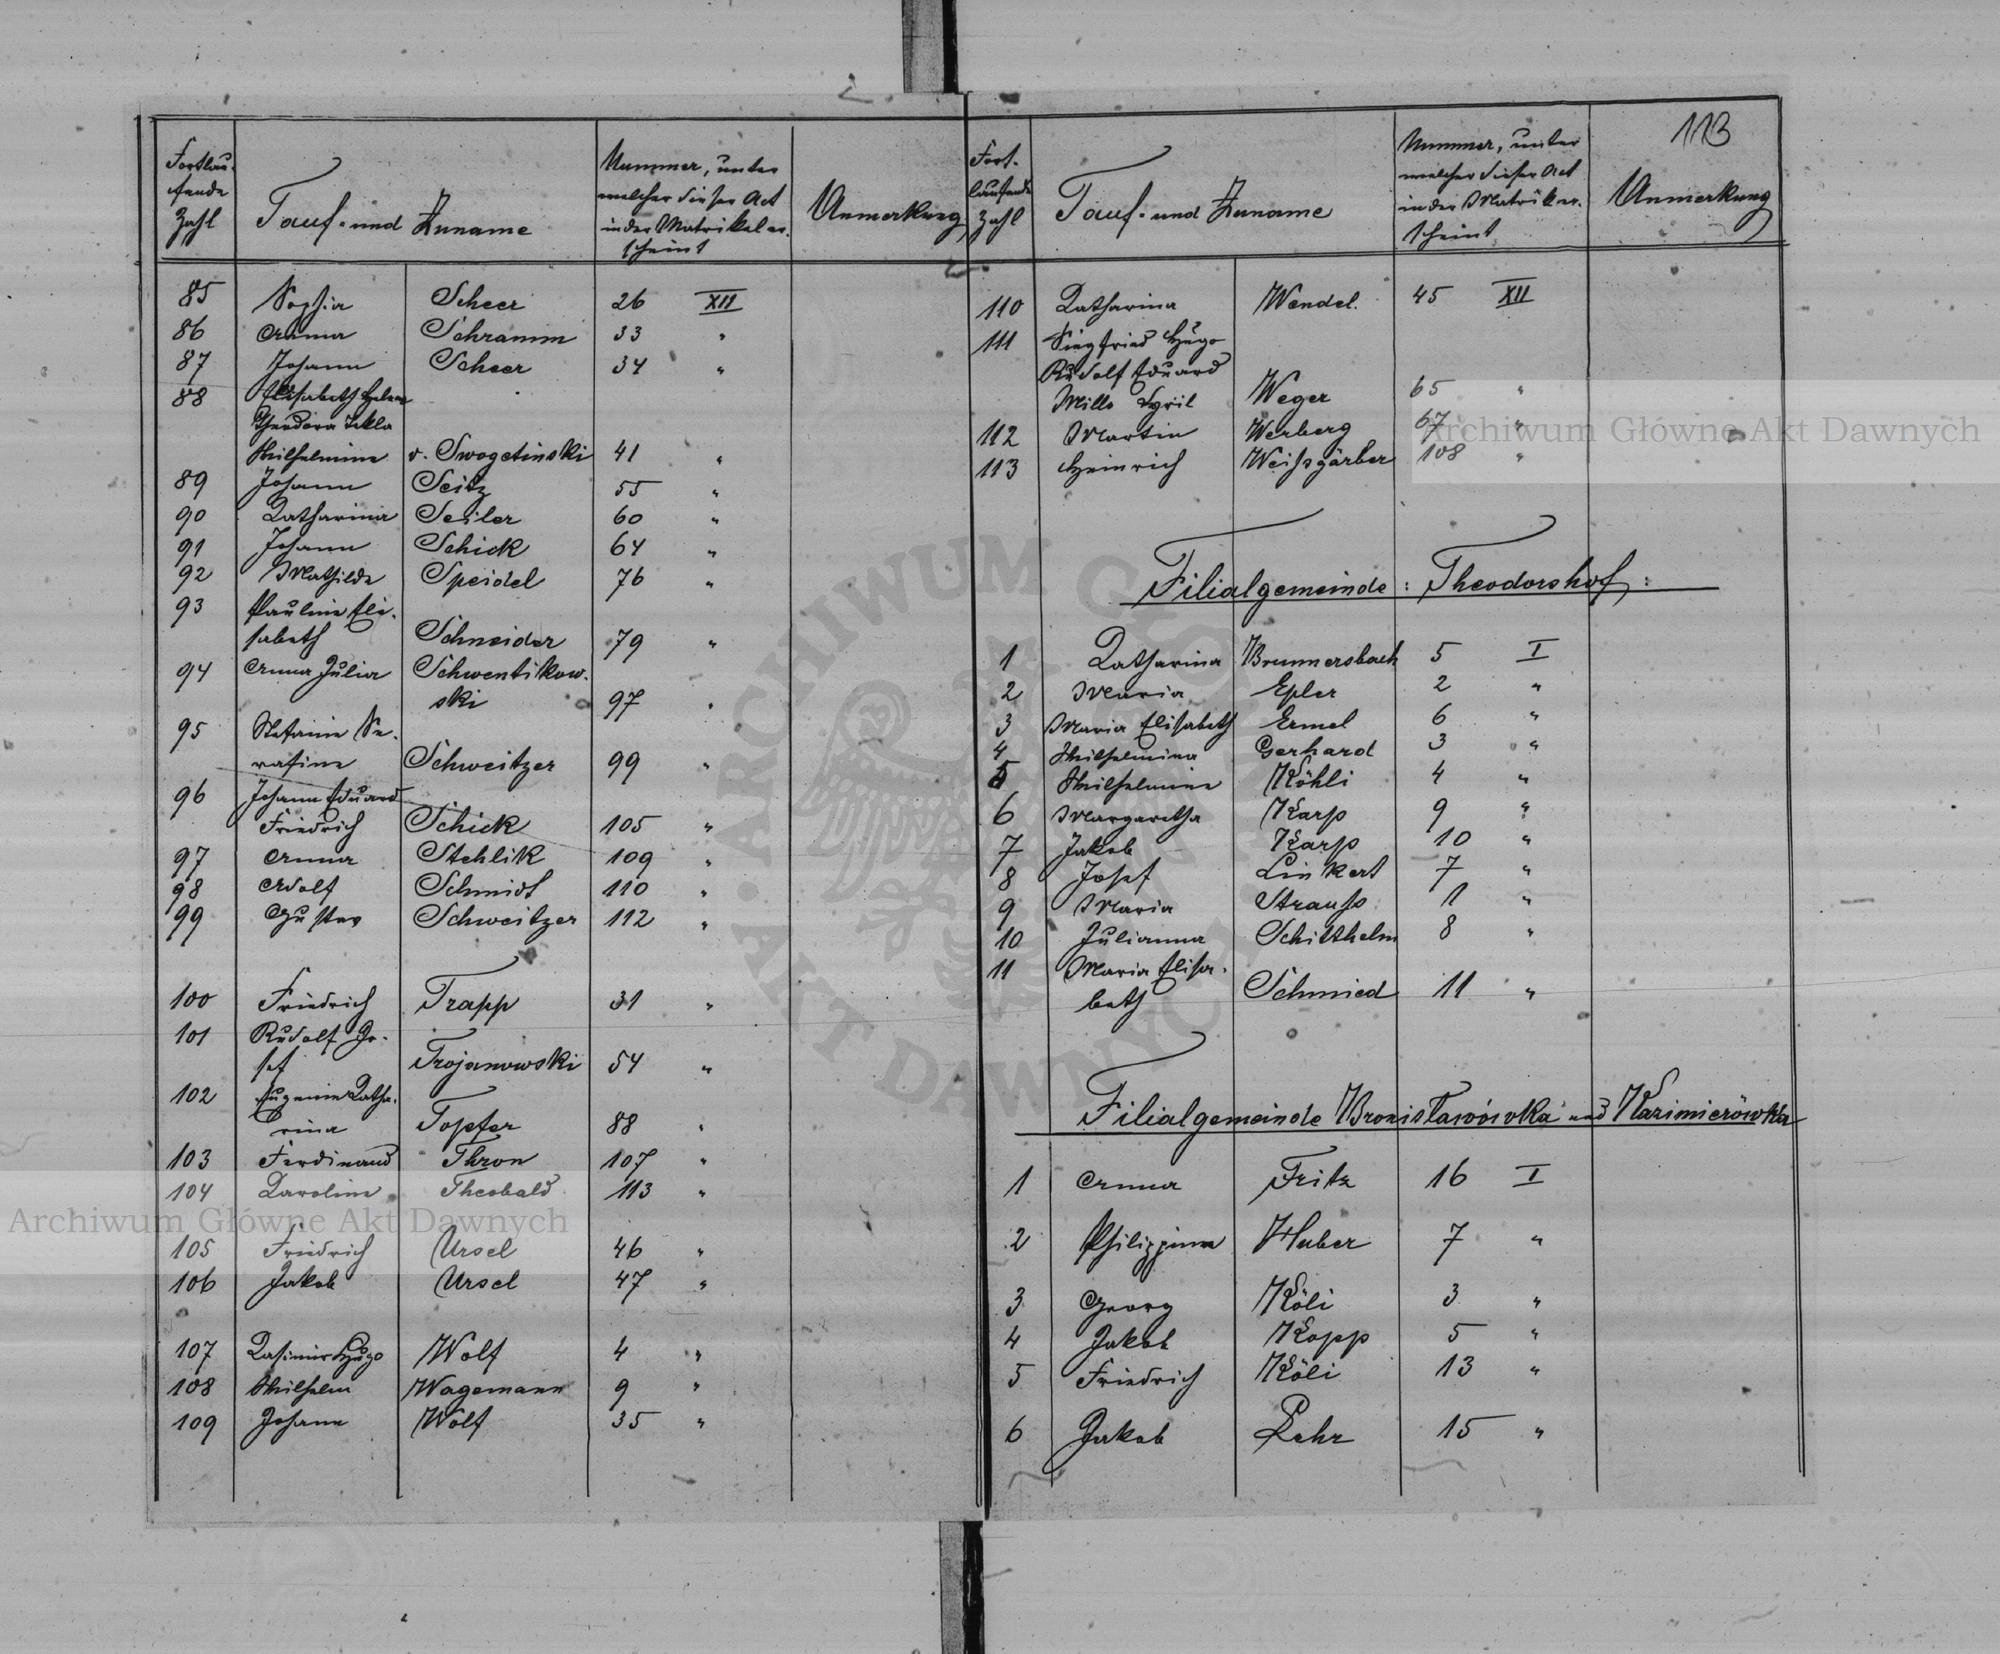 113
Fortlau-
fende
Zahl
Tauf- und Zuname
Nummer, unter
welcher dieser Act
in der Matrikel er-
scheint
Anmerkung
85 Sophia Scheer 26 XII
86 Anna Schramm 33 "
87 Johann Scheer 34 "
88 Elisabeth Helene
Theodora Tekla
Wilhelmine v. Swogetinski 41 "
89 Johann Seitz 55 "
90 Katharina Seiler 60 "
91 Johann Schick 64 "
92 Mathilde Speidel 76 "
93 Pauline Eli-
sabeth Schneider 79 "
94 Anna Julia Schwentikow-
ski 97 "
95 Stefanie Se-
rafine Schweitzer 99 "
96 Johann Eduard
Friedrich Schick 105 "
97 Anna Stehlik 109 "
98 Adolf Schmidt 110 "
99 Gustav Schweitzer 112 "
100 Friedrich Trapp 31 "
101 Rudolf Jo-
sef Trojanowski 54 "
102 Eugenie Katha-
rina Topfer 88 "
103 Ferdinand Thron 107 "
104 Karoline Theobald 113 "
105 Friedrich Ursel 46 "
106 Jakob Ursel 47 "
107 Kasimir Hugo Wolf 4 "
108 Wilhelm Wagemann 9 "
109 Johann Wolf 35 "
Fort-
laufende
Zahl
Tauf- und Zuname
Nummer, unter
welcher dieser Act
in der Matrik er-
scheint
Anmerkung
110 Katharina Wendel 45 XII
111 Siegfried Hugo
Rudolf Eduard
Millo Cyril Weger 65 "
112 Martin Werberg 67 "
113 Heinrich Weißgärber 108 "
Filialgemeinde: Theodorshof:
1 Katharina Brunnersbach 5 I
2 Maria Epler 2 "
3 Maria Elisabeth Ermel 6 "
4 Wilhelmina Gerhard 3 "
5 Wilhelmine Köhli 4 "
6 Margaretha Karp 9 "
7 Jakob Karp 10 "
8 Josef Linkert 7 "
9 Maria Strauß 1 "
10 Julianna Schitthelm 8 "
11 Maria Elisa-
beth Schmied 11 "
Filialgemeinde Bronisławówka und Kazimierówka
1 Anna Fritz 16 I
2 Philippina Huber 7 "
3 Georg Köli 3 "
4 Jakob Kopp 5 "
5 Friedrich Köli 13 "
6 Jakob Lehr 15 "
Archiwum Główne Akt Dawnych
Archiwum Główne Akt Dawnych
ARCHIWUM GŁÓWNE AKT DAWNYCH